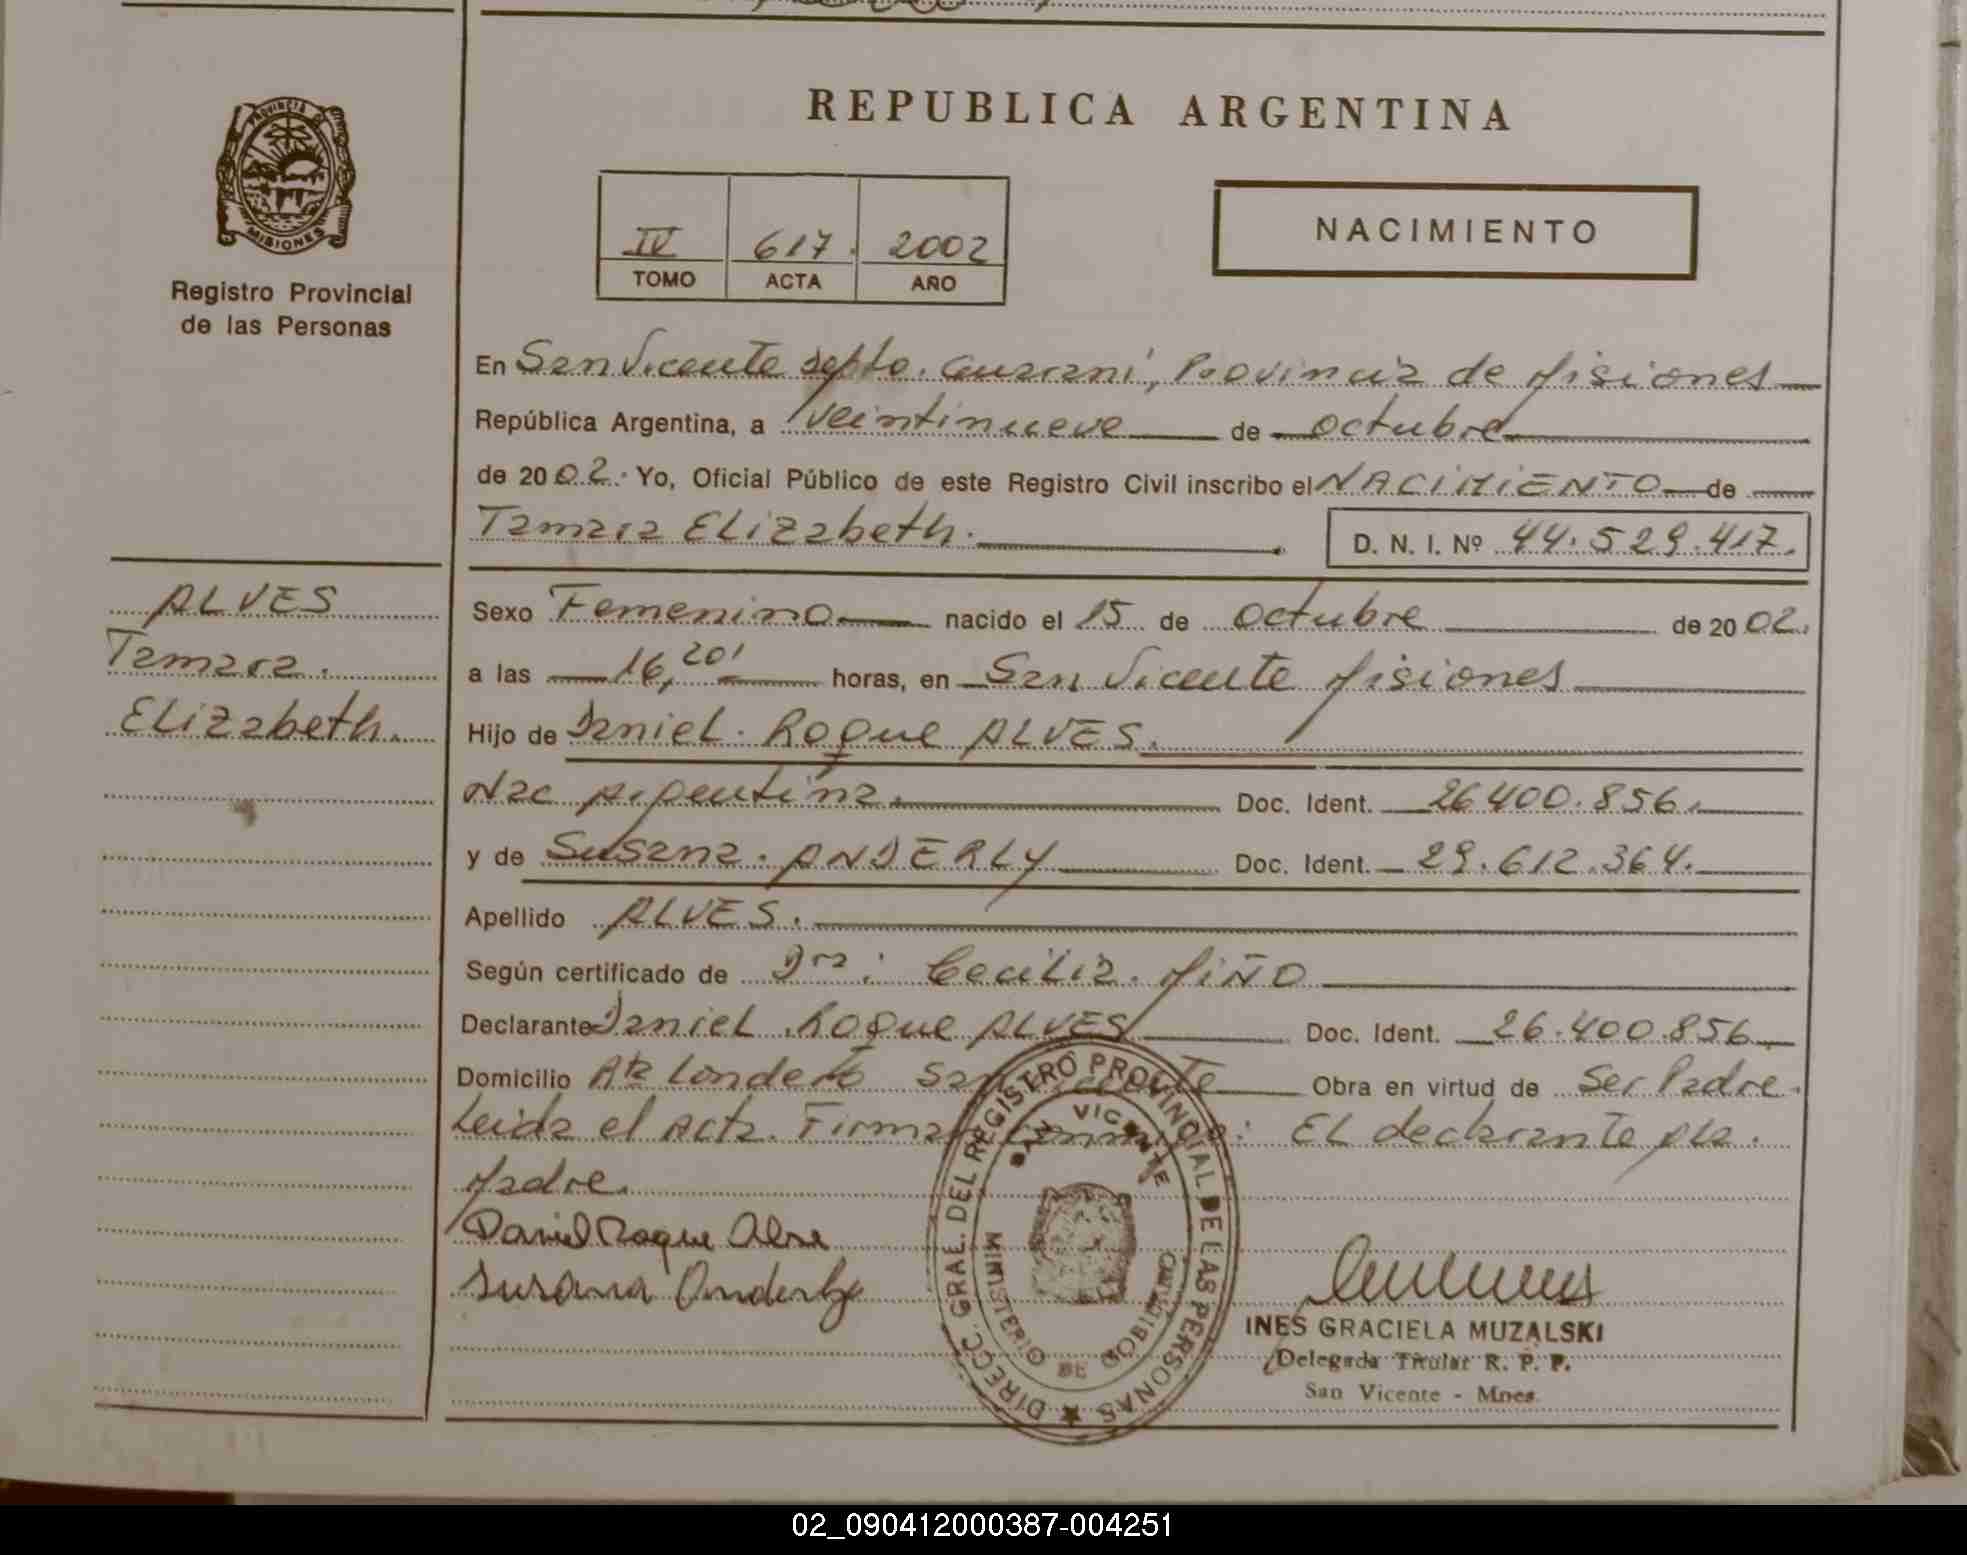 REPUBLICA ARGENTINA
PROVINCIA DE
MISIONES
Registro Provincial
de las Personas
IV 617. 2002
TOMO ACTA AÑO
NACIMIENTO
En San Vicente Depto. Guaraní, Provincia de Misiones
República Argentina, a veintinueve de octubre
de 2002. Yo, Oficial Público de este Registro Civil inscribo el NACIMIENTO de
Tamara Elizabeth. D. N. I. Nº 44.529.417.
ALVES
Tamara.
Elizabeth.
Sexo Femenino nacido el 15 de octubre de 2002.
a las 16,20' horas, en San Vicente Misiones
Hijo de Daniel Roque ALVES.
Nac Argentina. Doc. Ident. 26.400.856.
y de Susana. ANDERLY Doc. Ident. 29.612.364.
Apellido ALVES.
Según certificado de Dra: Cecilia. MIÑO
Declarante Daniel Roque ALVES Doc. Ident. 26.400.856.
Domicilio Alta Londero San Vicente Obra en virtud de Ser Padre.
Leida el Acta. Firman conmigo: EL declarante y la
Madre.
Daniel Roque Alve
Susana Anderly
DIRECC. GRAL. DEL REGISTRO PROVINCIAL DE LAS PERSONAS
SAN VICENTE
MINISTERIO DE GOBIERNO
INES GRACIELA MUZALSKI
Delegada Titular R. P. P.
San Vicente - Mnes.
02_090412000387-004251